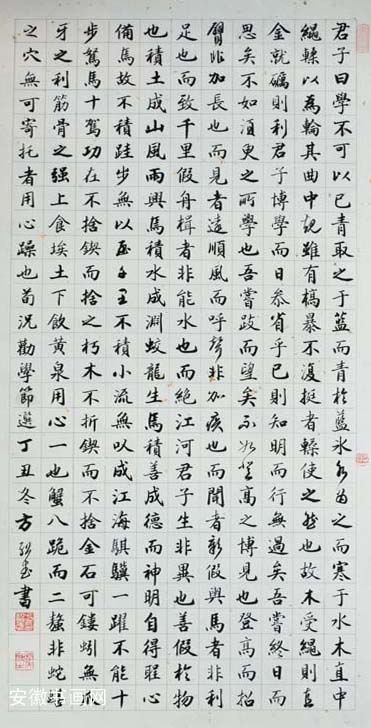 君子曰學不可以已青取之于藍而青於藍冰水為之而寒于水木直中
繩輮以為輪其曲中規雖有槁暴不復挺者輮使之然也故木受繩則直
金就礪則利君子博學而日參省乎己則知明而行無過矣吾嘗終日而
思矣不如須臾之所學也吾嘗跂而望矣不如登高之博見也登高而招
臂非加長也而見者遠順風而呼聲非加疾也而聞者彰假輿馬者非利
足也而致千里假舟楫者非能水也而絕江河君子生非異也善假於物
也積土成山風雨興焉積水成淵蛟龍生焉積善成德而神明自得聖心
備焉故不積跬步無以至千里不積小流無以成江海騏驥一躍不能十
步駑馬十駕功在不捨鍥而捨之朽木不折鍥而不捨金石可鏤蚓無爪
牙之利筋骨之强上食埃土下飲黃泉用心一也蟹八跪而二螯非蛇鱔
之穴無可寄托者用心躁也荀況勸學節選丁丑冬方書
安徽书画网